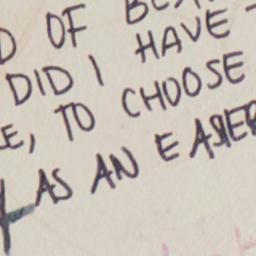 OF
DID I HAVE
TO CHOOSE
AS AN EASIER